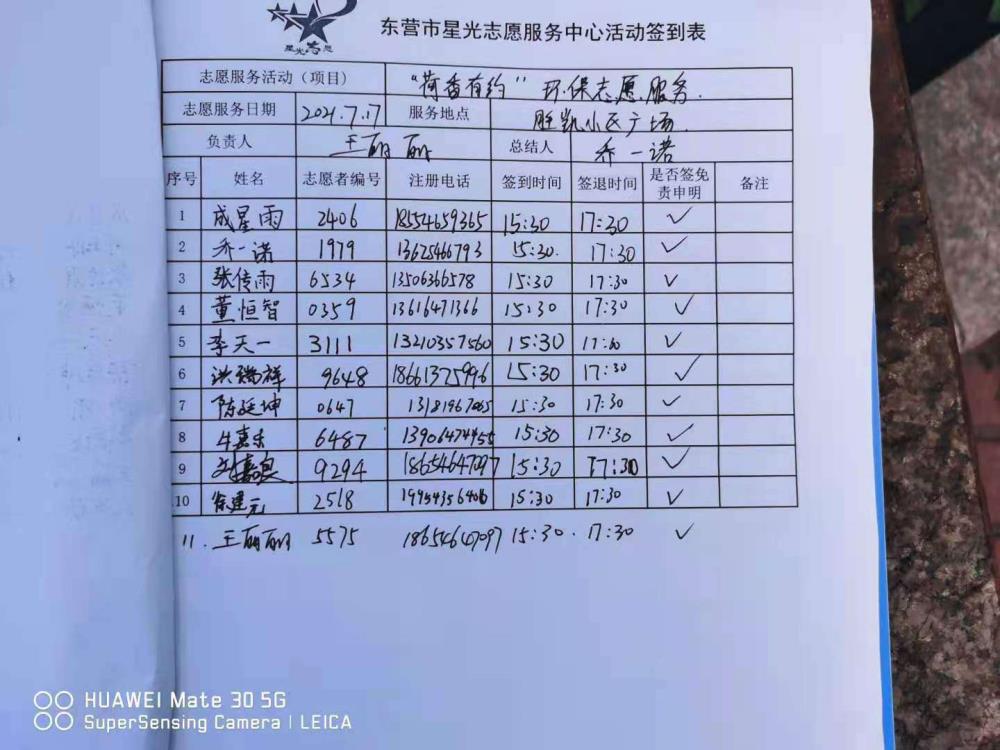 星光志愿
东营市星光志愿服务中心活动签到表
志愿服务活动（项目） “荷香有约”环保志愿服务.
志愿服务日期 2021.7.17 服务地点 胜凯小区广场.
负责人 王丽丽 总结人 乔一诺
序号 姓名 志愿者编号 注册电话 签到时间 签退时间 是否签免责申明 备注
1 成星雨 2406 18554659365 15:30 17:30 ✓
2 乔一诺 1979 13625466793 15:30. 17:30 ✓
3 张传雨 6534 13506366578 15:30 17:30 ✓
4 董恒智 0359 13616471366 15:30 17:30 ✓
5 李天一 3111 13210357560 15:30 ✓
6 洪瑞祥 9648 18661375996 15:30 17:30 ✓
7 陈廷坤 0647 15:30 17:30 ✓
8 牛嘉乐 6487 13906474955 15:30 17:30 ✓
9 9294 18654647097 15:30 17:30 ✓
10 徐建元 2518 19954356406 15:30 17:30 ✓
11. 王丽丽 5575 18654647097 15:30. 17:30 ✓
HUAWEI Mate 30 5G
SuperSensing Camera | LEICA